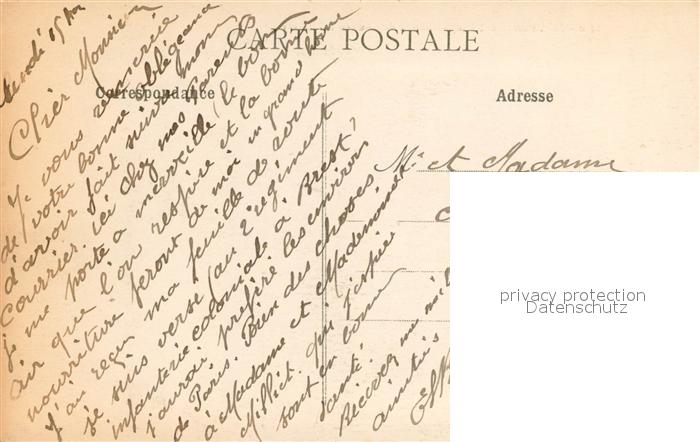 CARTE POSTALE
Correspondance
Adresse
Mr et Madame
Cher Monsieur
Je vous remercie
de votre bonne obligeance
d'avoir fait suivre mon
Courrier. ici chez mes Parents
je me porte a merveille, le bon
air que l'on respire et la bonne
nourriture feront de moi un grand homme
J'ai reçu ma feuille de route
je suis versé au 2e régiment
infanterie coloniale à Brest,
j'aurai préféré les environs
de Paris. Bien des choses
à Madame et Mademoiselle
Milliet. qui j'espère
sont en bonne
santé.
Recevez mes
amitiés
privacy protection
Datenschutz